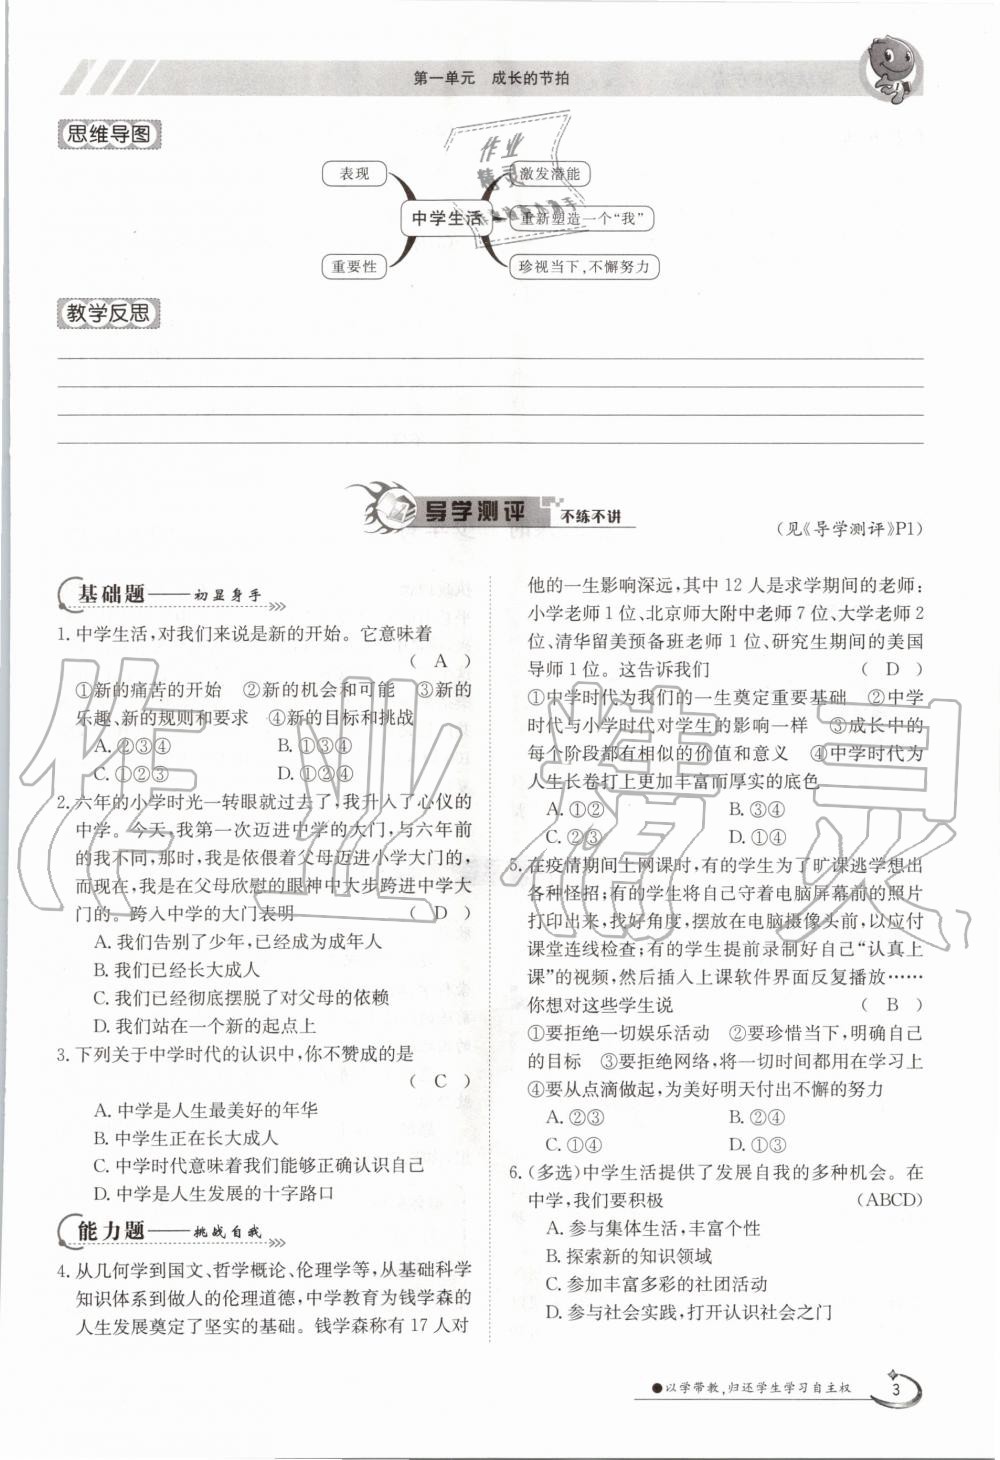 第一单元　成长的节拍
思维导图
表现
重要性
中学生活
激发潜能
重新塑造一个“我”
珍视当下,不懈努力
作业
精灵
教学反思
导学测评 不练不讲
(见《导学测评》P1)
基础题——初显身手
1. 中学生活,对我们来说是新的开始。它意味着
( A )
①新的痛苦的开始　②新的机会和可能　③新的
乐趣、新的规则和要求　④新的目标和挑战
A. ②③④　B. ①③④
C. ①②③　D. ①②③④
2. 六年的小学时光一转眼就过去了,我升入了心仪的
中学。今天,我第一次迈进中学的大门,与六年前
的我不同,那时,我是依偎着父母迈进小学大门的,
而现在,我是在父母欣慰的眼神中大步跨进中学大
门的。跨入中学的大门表明　( D )
A. 我们告别了少年,已经成为成年人
B. 我们已经长大成人
C. 我们已经彻底摆脱了对父母的依赖
D. 我们站在一个新的起点上
3. 下列关于中学时代的认识中,你不赞成的是
( C )
A. 中学是人生最美好的年华
B. 中学生正在长大成人
C. 中学时代意味着我们能够正确认识自己
D. 中学是人生发展的十字路口
能力题——挑战自我
4. 从几何学到国文、哲学概论、伦理学等,从基础科学
知识体系到做人的伦理道德,中学教育为钱学森的
人生发展奠定了坚实的基础。钱学森称有 17 人对
他的一生影响深远,其中 12 人是求学期间的老师:
小学老师 1 位、北京师大附中老师 7 位、大学老师 2
位、清华留美预备班老师 1 位、研究生期间的美国
导师 1 位。这告诉我们　( D )
①中学时代为我们的一生奠定重要基础　②中学
时代与小学时代对学生的影响一样　③成长中的
每个阶段都有相似的价值和意义　④中学时代为
人生长卷打上更加丰富而厚实的底色
A. ①②　B. ③④
C. ②③　D. ①④
5. 在疫情期间上网课时,有的学生为了旷课逃学想出
各种怪招;有的学生将自己守着电脑屏幕前的照片
打印出来,找好角度,摆放在电脑摄像头前,以应付
课堂连线检查;有的学生提前录制好自己“认真上
课”的视频,然后插入上课软件界面反复播放……
你想对这些学生说　( B )
①要拒绝一切娱乐活动　②要珍惜当下,明确自己
的目标　③要拒绝网络,将一切时间都用在学习上
④要从点滴做起,为美好明天付出不懈的努力
A. ②③　B. ②④
C. ①④　D. ①③
6. (多选)中学生活提供了发展自我的多种机会。在
中学,我们要积极　(ABCD)
A. 参与集体生活,丰富个性
B. 探索新的知识领域
C. 参加丰富多彩的社团活动
D. 参与社会实践,打开认识社会之门
●以学带教,归还学生学习自主权
3
作业精灵